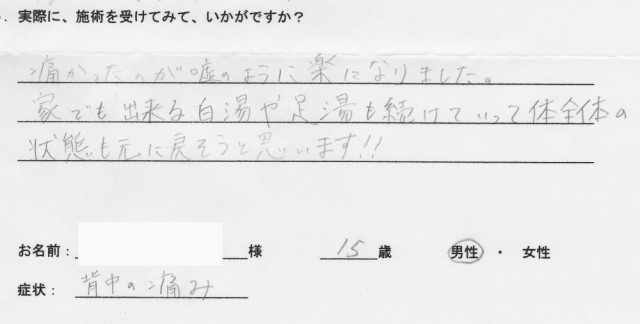 . 実際に、施術を受けてみて、いかがですか？
痛かったのが嘘のように楽になりました。
家でも出来る白湯や足湯も続けていって体全体の
状態も元に戻そうと思います!!
お名前： 様 15 歳 男性 ・ 女性
症状： 背中の痛み